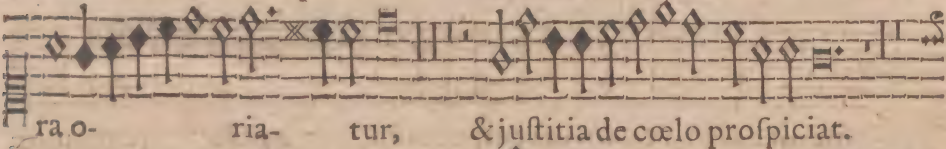 ra o- ria- tur, & juſtitia de cœlo proſpiciat.